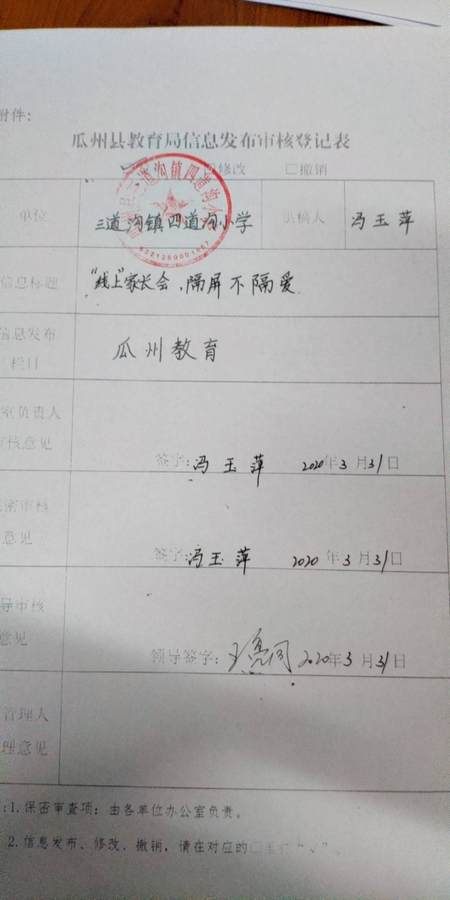 附件：
瓜州县教育局信息发布审核登记表
修改 □撤销
单位 三道沟镇四道沟小学 供稿人 冯玉萍
6221260001967
信息标题 “线上”家长会，隔屏不隔爱
信息发布
栏目 瓜州教育
室负责人
审核意见
签字：冯玉萍 2020年3月31日
保密审核
意见
签字：冯玉萍 2020年3月31日
导审核
意见
领导签字： 2020年3月31日
管理人
理意见
：1.保密审查项：由各单位办公室负责。
2.信息发布、修改、撤销，请在对应的□里打“√”。